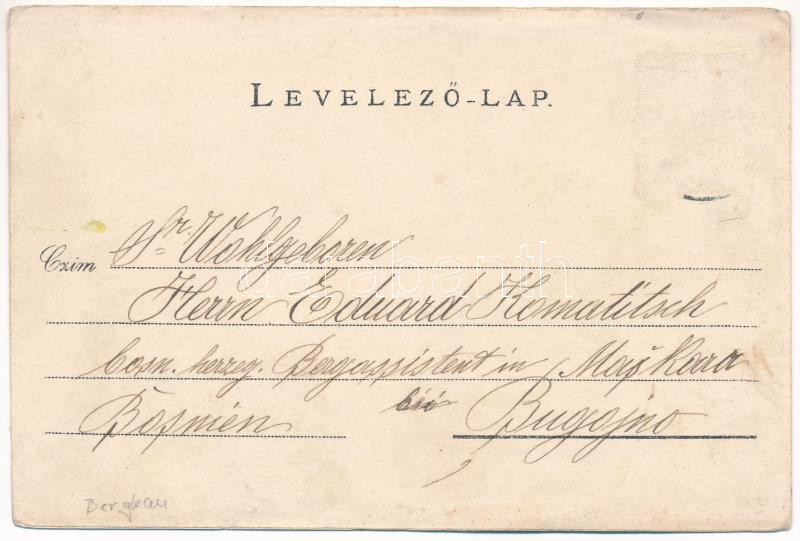 LEVELEZŐ-LAP.
Czim Sr. Wohlgeboren
Herrn Eduard Komatitsch
bosn. herzeg. Bergassistent in Maškara
bei Bugojno
Bosnien
darabanth